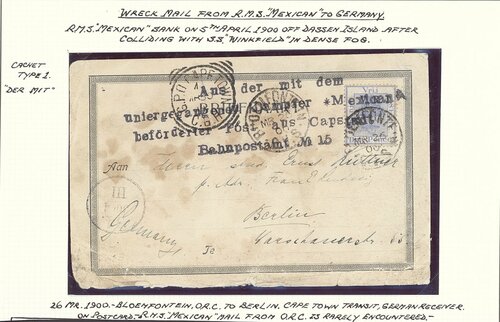 WRECK MAIL FROM R.M.S. "MEXICAN" TO GERMANY.
R.M.S. "MEXICAN" SANK ON 5TH APRIL 1900 OFF DASSEN ISLAND AFTER
COLLIDING WITH S.S. "WINKFIELD" IN DENSE FOG.
CACHET
TYPE 1.
"DER MIT"
Aus der mit dem
untergegangenen Dampfer "Mexican"
beförderter Post aus Capstadt
Bahnpostamt № 15
Aan
Herrn stud. Ernst
p. Adr.
Berlin
Germany
Te
Warschauerstr.
26 MR. 1900.- BLOEMFONTEIN, O.R.C. TO BERLIN. CAPE TOWN TRANSIT, GERMAN RECEIVER.
ON POSTCARD.- R.M.S. "MEXICAN" MAIL FROM O.R.C. IS RARELY ENCOUNTERED.-